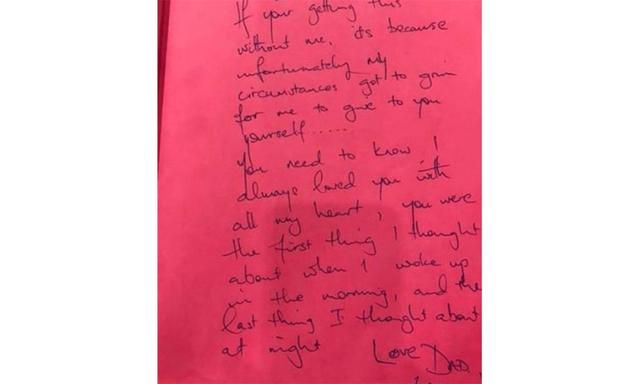 If your getting this
without me, its because
unfortunately my
circumstances got to grim
for me to give to you
yourself.....
you need to know I
always loved you with
all my heart, you were
the first thing I thought
about when I woke up
in the morning, and the
last thing I thought about
at night
Love DAD